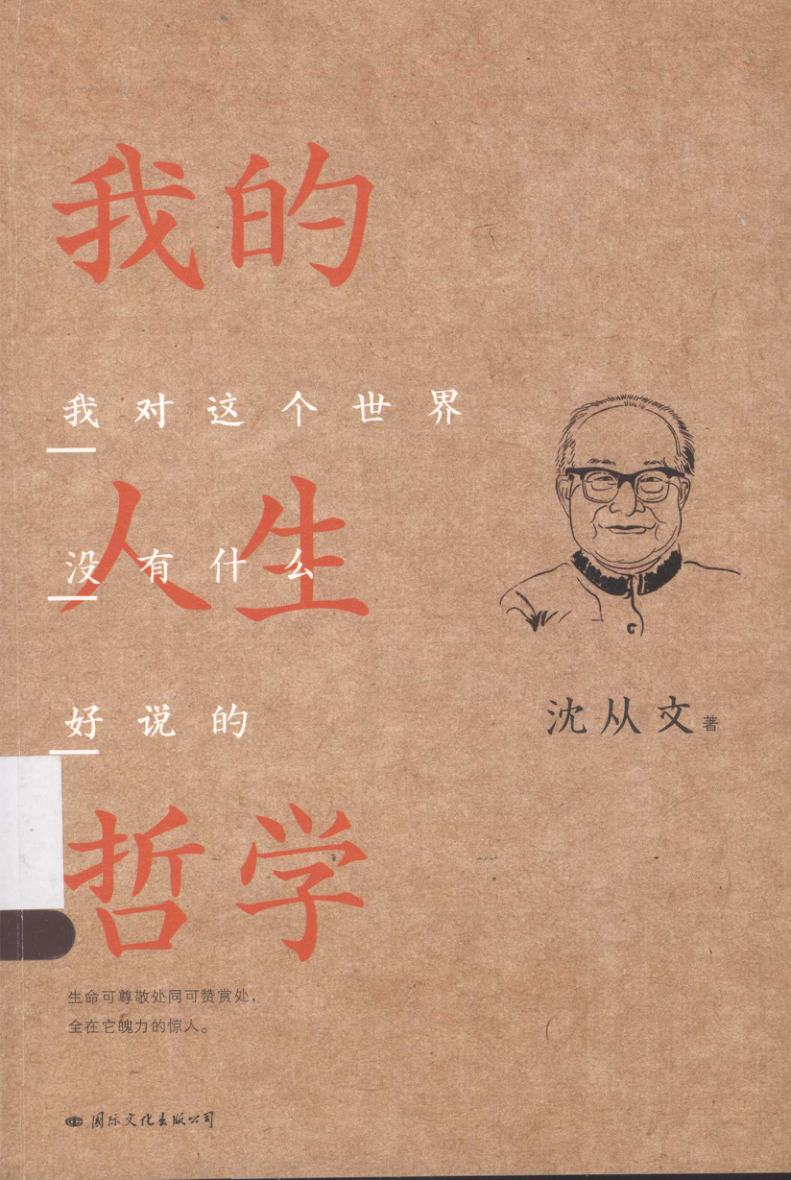 我的
我对这个世界
人生
没有什么
好说的
沈从文 著
哲学
生命可尊敬处同可赞赏处，
全在它魄力的惊人。
国际文化出版公司